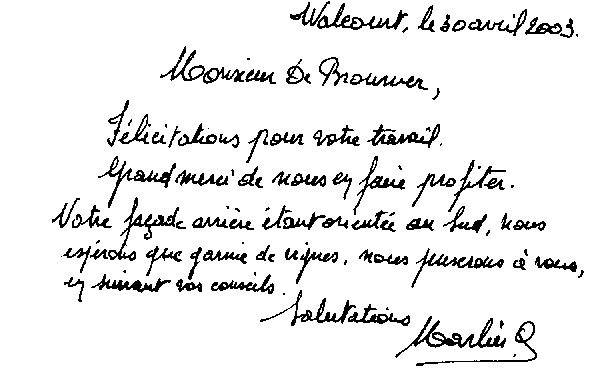 Walcourt, le 30 avril 2003.
Monsieur De Brouwer,
Félicitations pour votre travail.
Grand merci de nous en faire profiter.
Notre façade arrière étant orientée au Sud, nous
espérons que garnie de vignes, nous penserons à vous,
en suivant vos conseils.
Salutations
Marlier